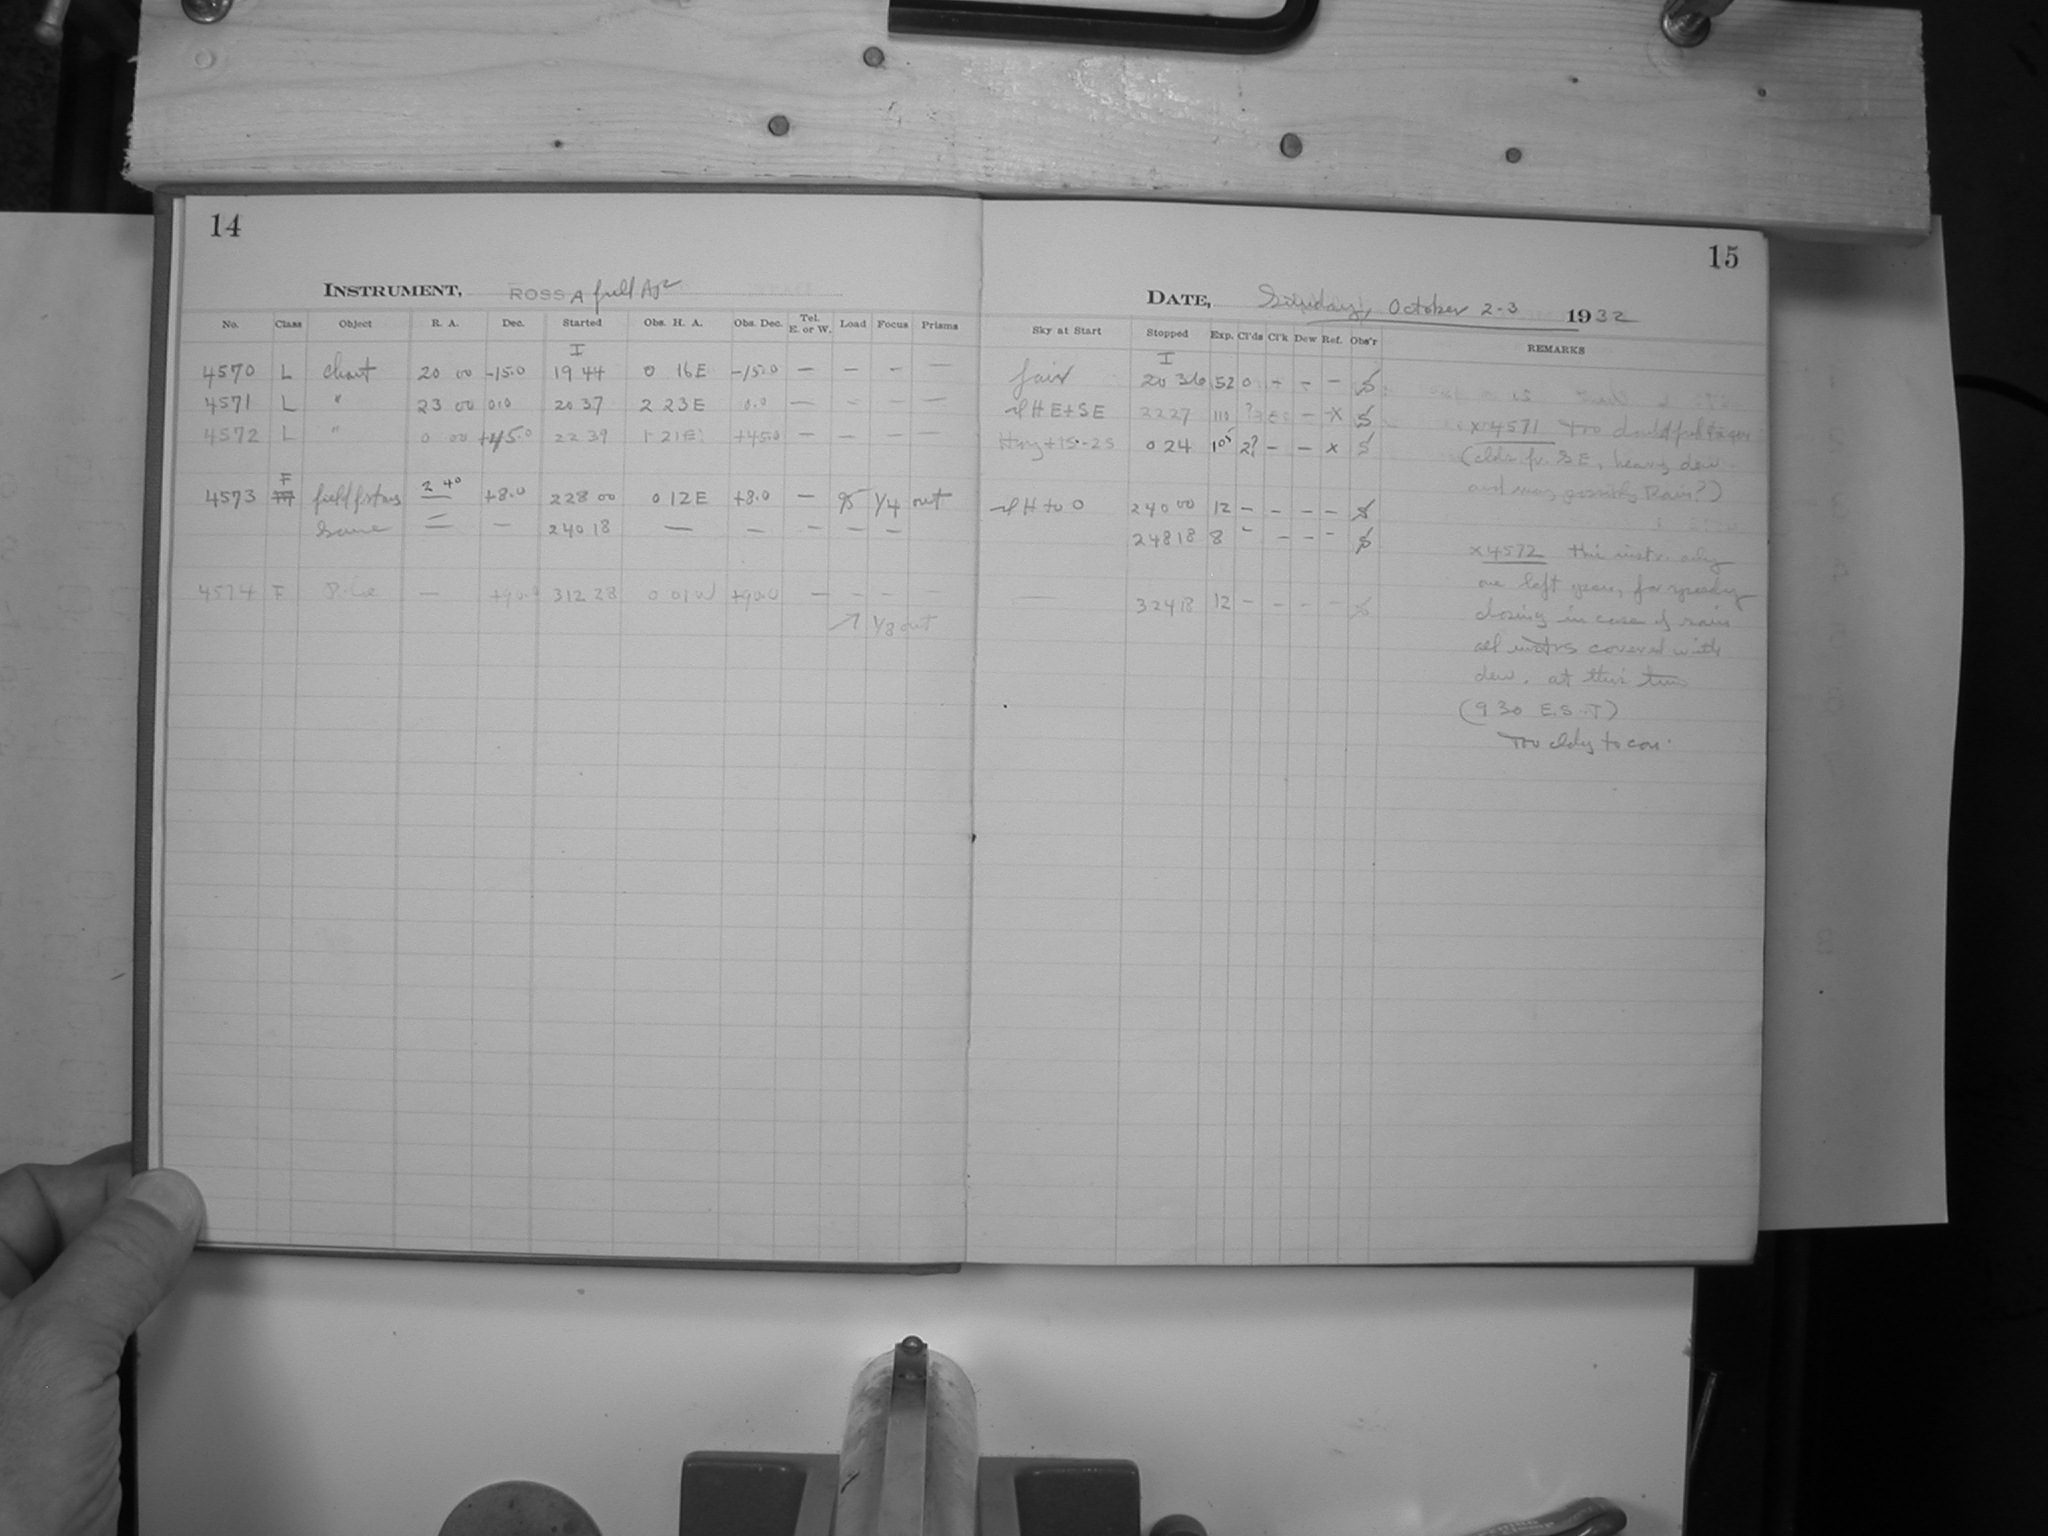 14
INSTRUMENT, ROSS A full Ap
No. Class Object R. A. Dec. Started Obs. H. A. Obs. Dec. Tel. E. or W. Load Focus Prisms
I
4570 L chart 20 00 -15.0 19 44 0 16 E -15.0 — — — —
4571 L " 23 00 0.0 20 37 2 23 E 0.0 — — — —
4572 L " 0 00 +45.0 22 39 1 21 E +45.0 — — — —
F
4573 field for 2 40 +8.0 2 28 00 0 12 E +8.0 — 1/4 out
Same — — 2 40 18 — — — — —
4574 F Pole — +90.0 3 12 28 0 01 W +90.0 — — — —
1/8 out
15
DATE, Sunday, October 2-3 1932
Sky at Start Stopped Exp. Cl'ds Cl'k Dew Ref. Obs'r REMARKS
I
fair 20 36 52 0 - - -
H E + SE 22 27 110 ? - X
Hzy + 15-25 0 24 105 2? - - x
H to 0 2 40 00 12 - - - -
2 48 18 8 - - - -
— 3 24 18 12 - - - -
x 4571 Too doubtful
(clds fr. SE, heavy dew
and may possibly Rain?)
x 4572 this instr. only
one left open, for speedy
closing in case of rain
all instrs covered with
dew. at this time
(9 30 E.S.T)
Too cldy to con.